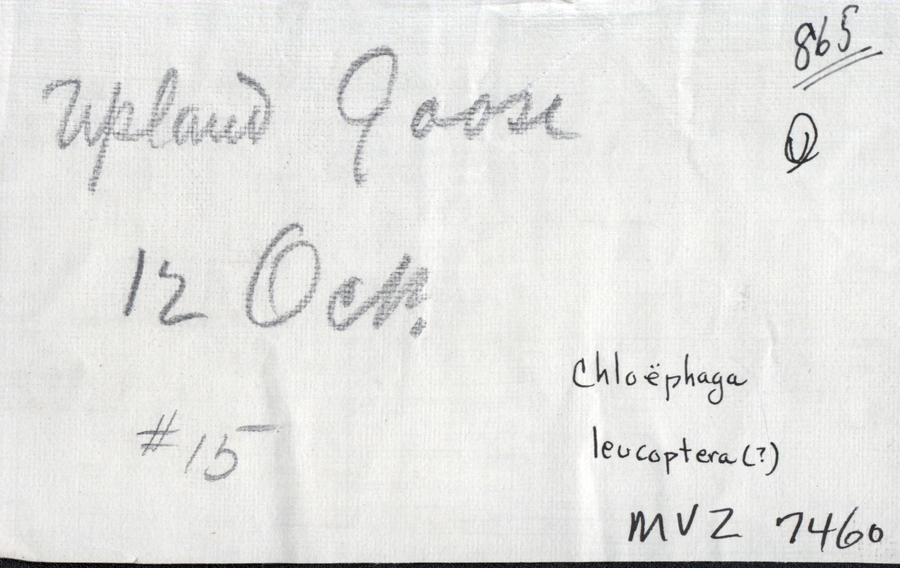 865
Upland Goose
12 Oct.
#15
Chloëphaga
leucoptera(?)
MVZ 7460